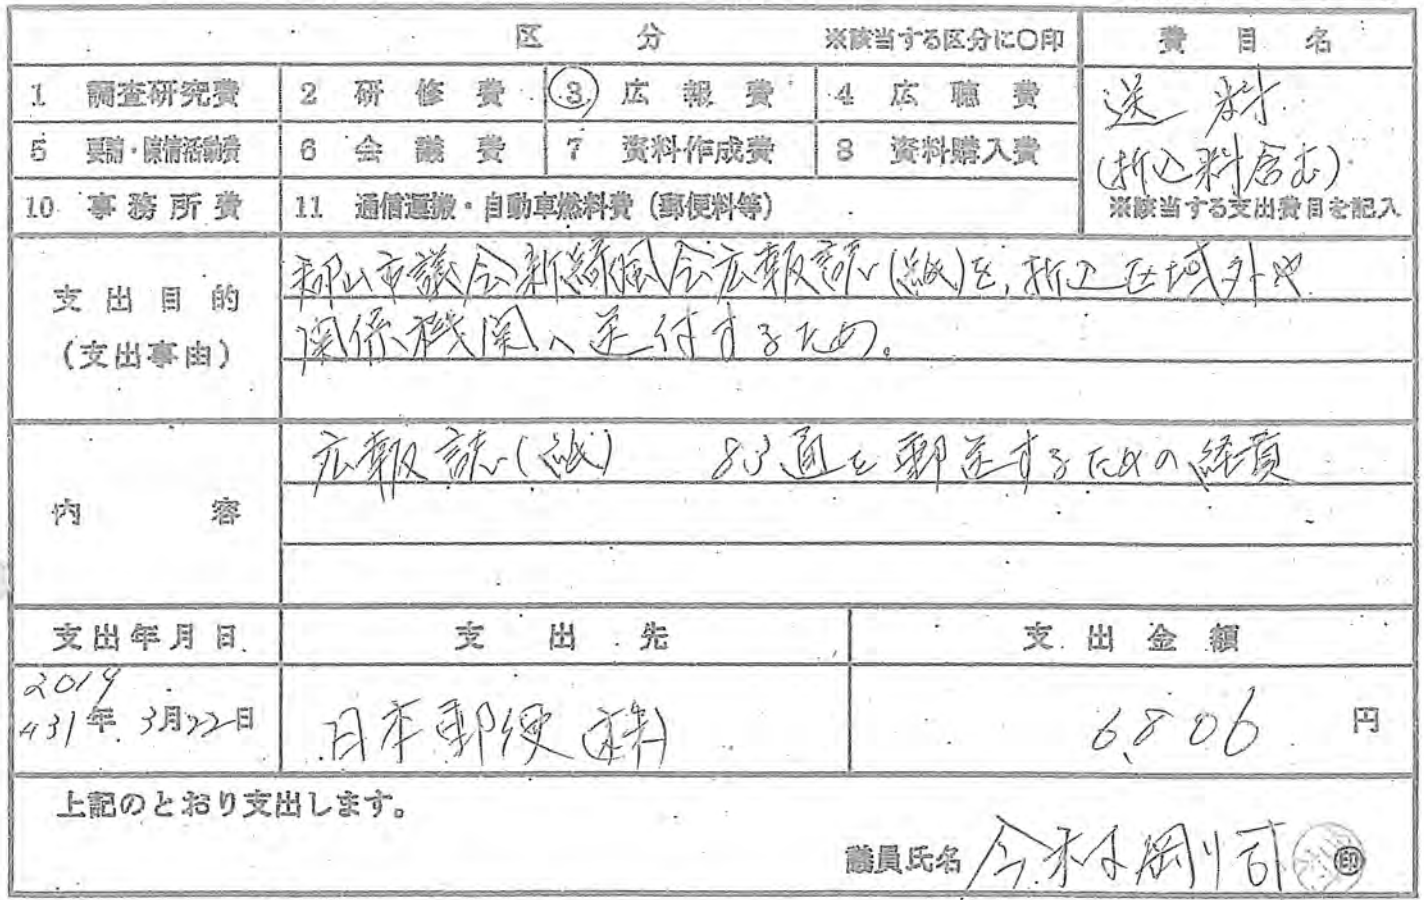 区 分 ※該当する区分に○印 費目名
1 調査研究費 2 研修費 3 広報費 4 広聴費
送料
5 要請・陳情活動費 6 会議費 7 資料作成費 8 資料購入費
(折込料含む)
10 事務所費 11 通信運搬・自動車燃料費(郵便料等)
※該当する支出費目を記入
支出目的
(支出事由)
郡山市議会新緑風会広報誌(紙)を、折込区域外や
関係機関へ送付するため。
内容
広報誌(紙) 83通を郵送するための経費
支出年月日 支出先 支出金額
2019
H31年3月22日 日本郵便(株) 6,806円
上記のとおり支出します。
議員氏名 今村剛司 印